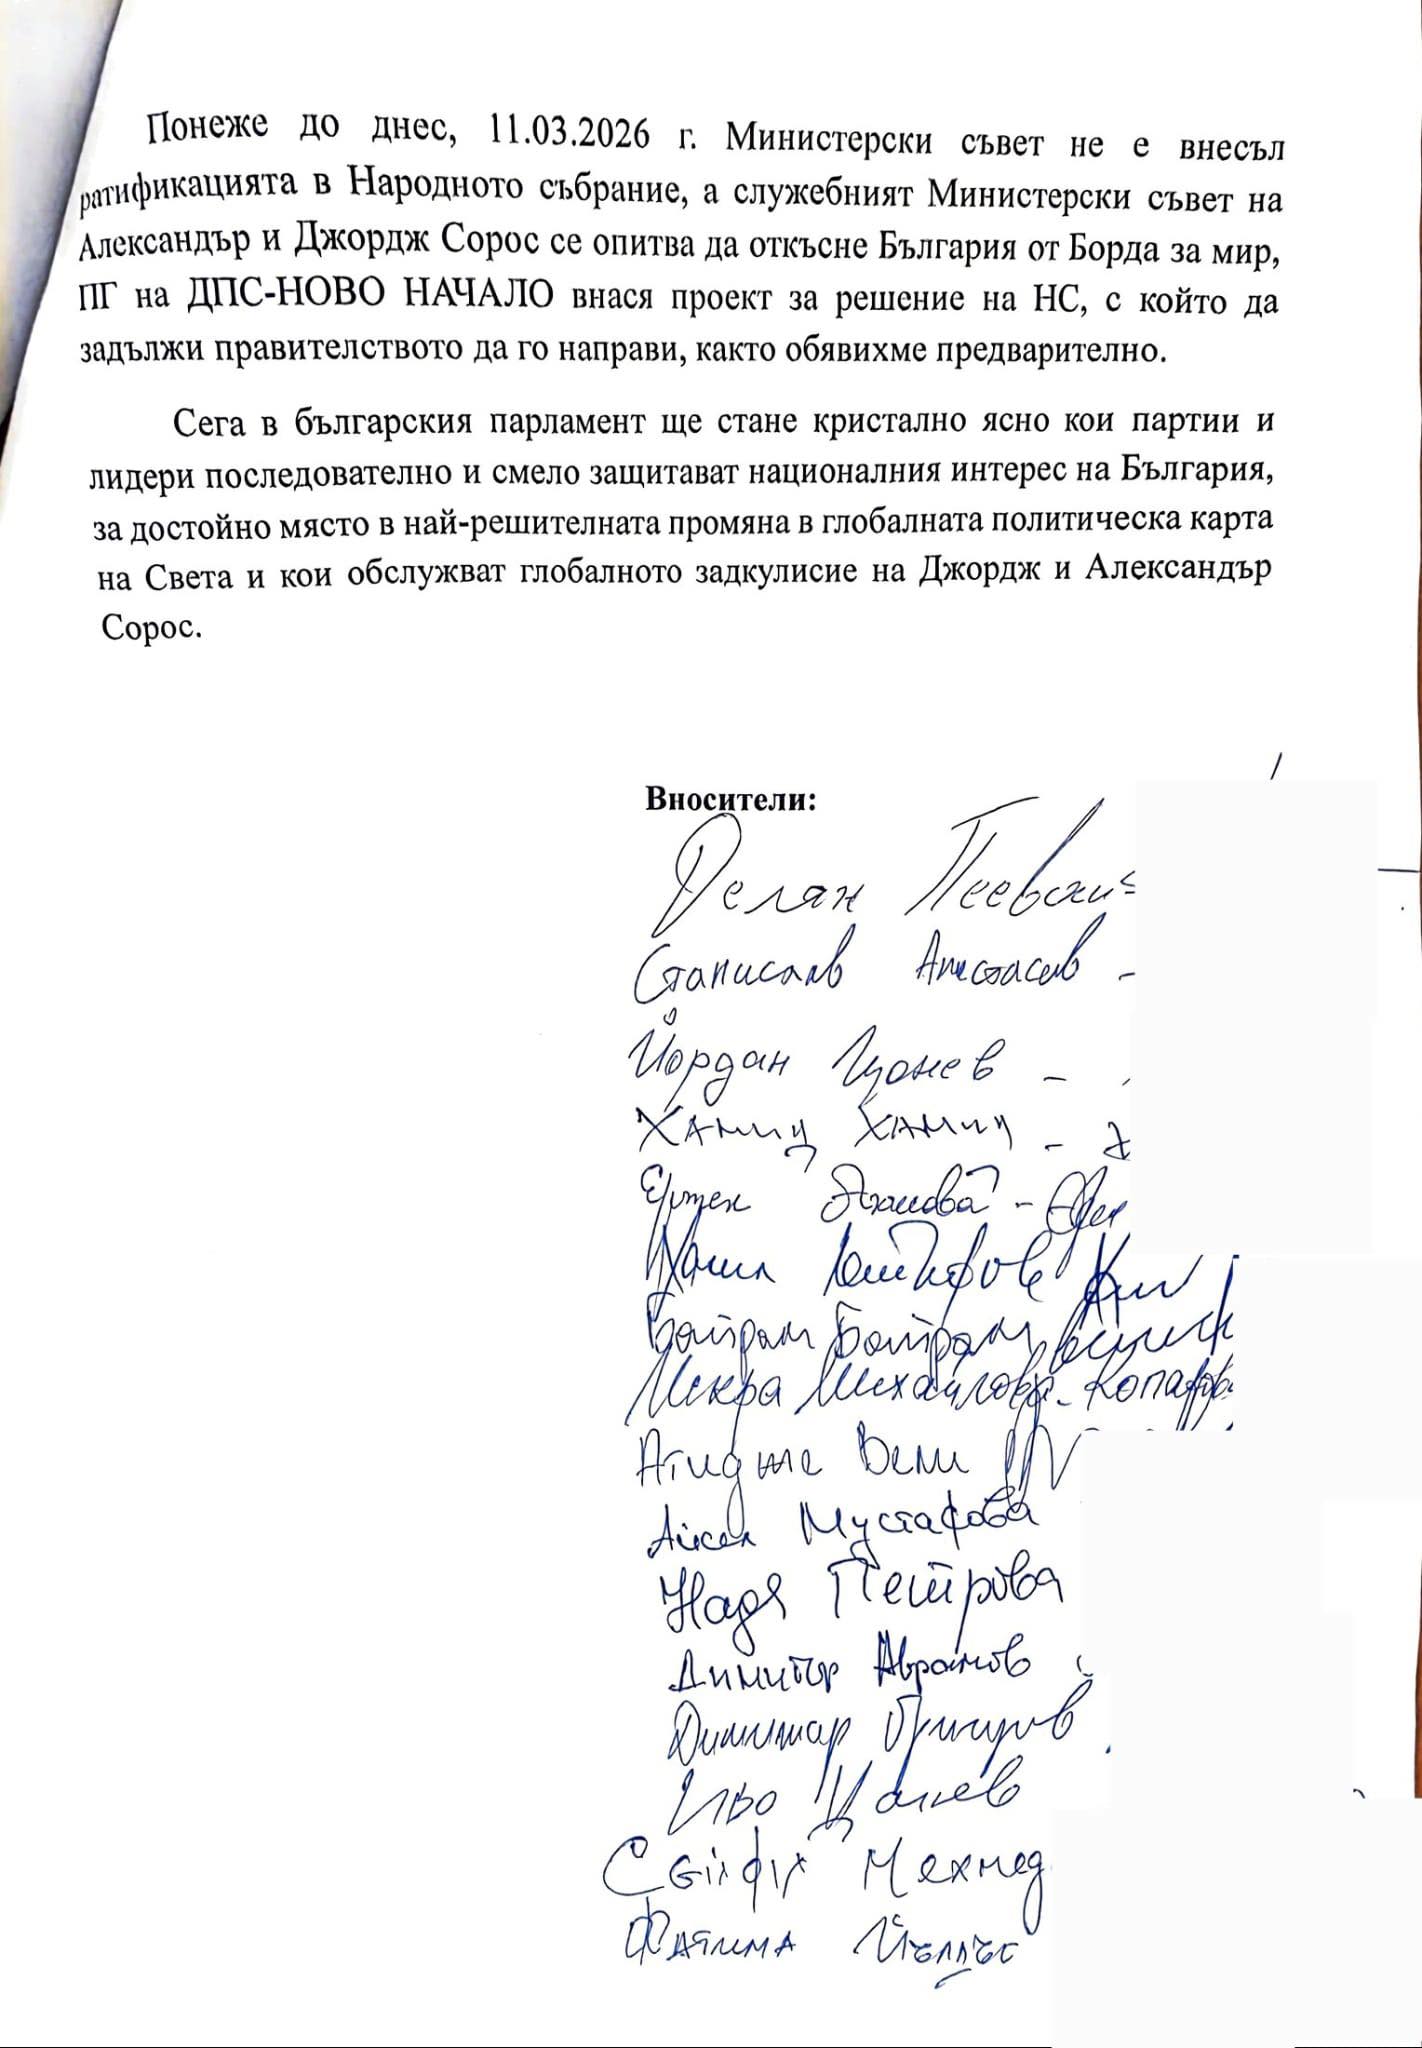 Понеже до днес, 11.03.2026 г. Министерски съвет не е внесъл
ратификацията в Народното събрание, а служебният Министерски съвет на
Александър и Джордж Сорос се опитва да откъсне България от Борда за мир,
ПГ на ДПС-НОВО НАЧАЛО внася проект за решение на НС, с който да
задължи правителството да го направи, както обявихме предварително.
Сега в българския парламент ще стане кристално ясно кои партии и
лидери последователно и смело защитават националния интерес на България,
за достойно място в най-решителната промяна в глобалната политическа карта
на Света и кои обслужват глобалното задкулисие на Джордж и Александър
Сорос.
Вносители:
Делян Пеевски -
Станислав Анастасов -
Йордан Цонев -
Хамид Хамид -
Халил Летифов
Байрам Байрам
Михайлова - Копарова
Атидже Вели
Айсел Мустафова
Надя Петрова
Димитър Аврамов
Димитър
Иво Цанев
Сейфи Мехмед
Фатима Йълдъз